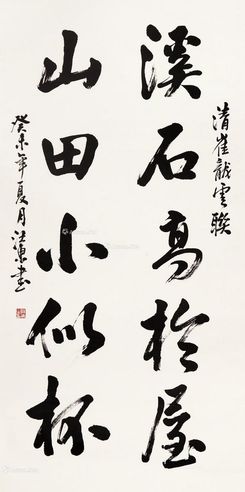 清崔龍雲聯
溪石高於屋
山田小似杯
癸未年夏月江東書